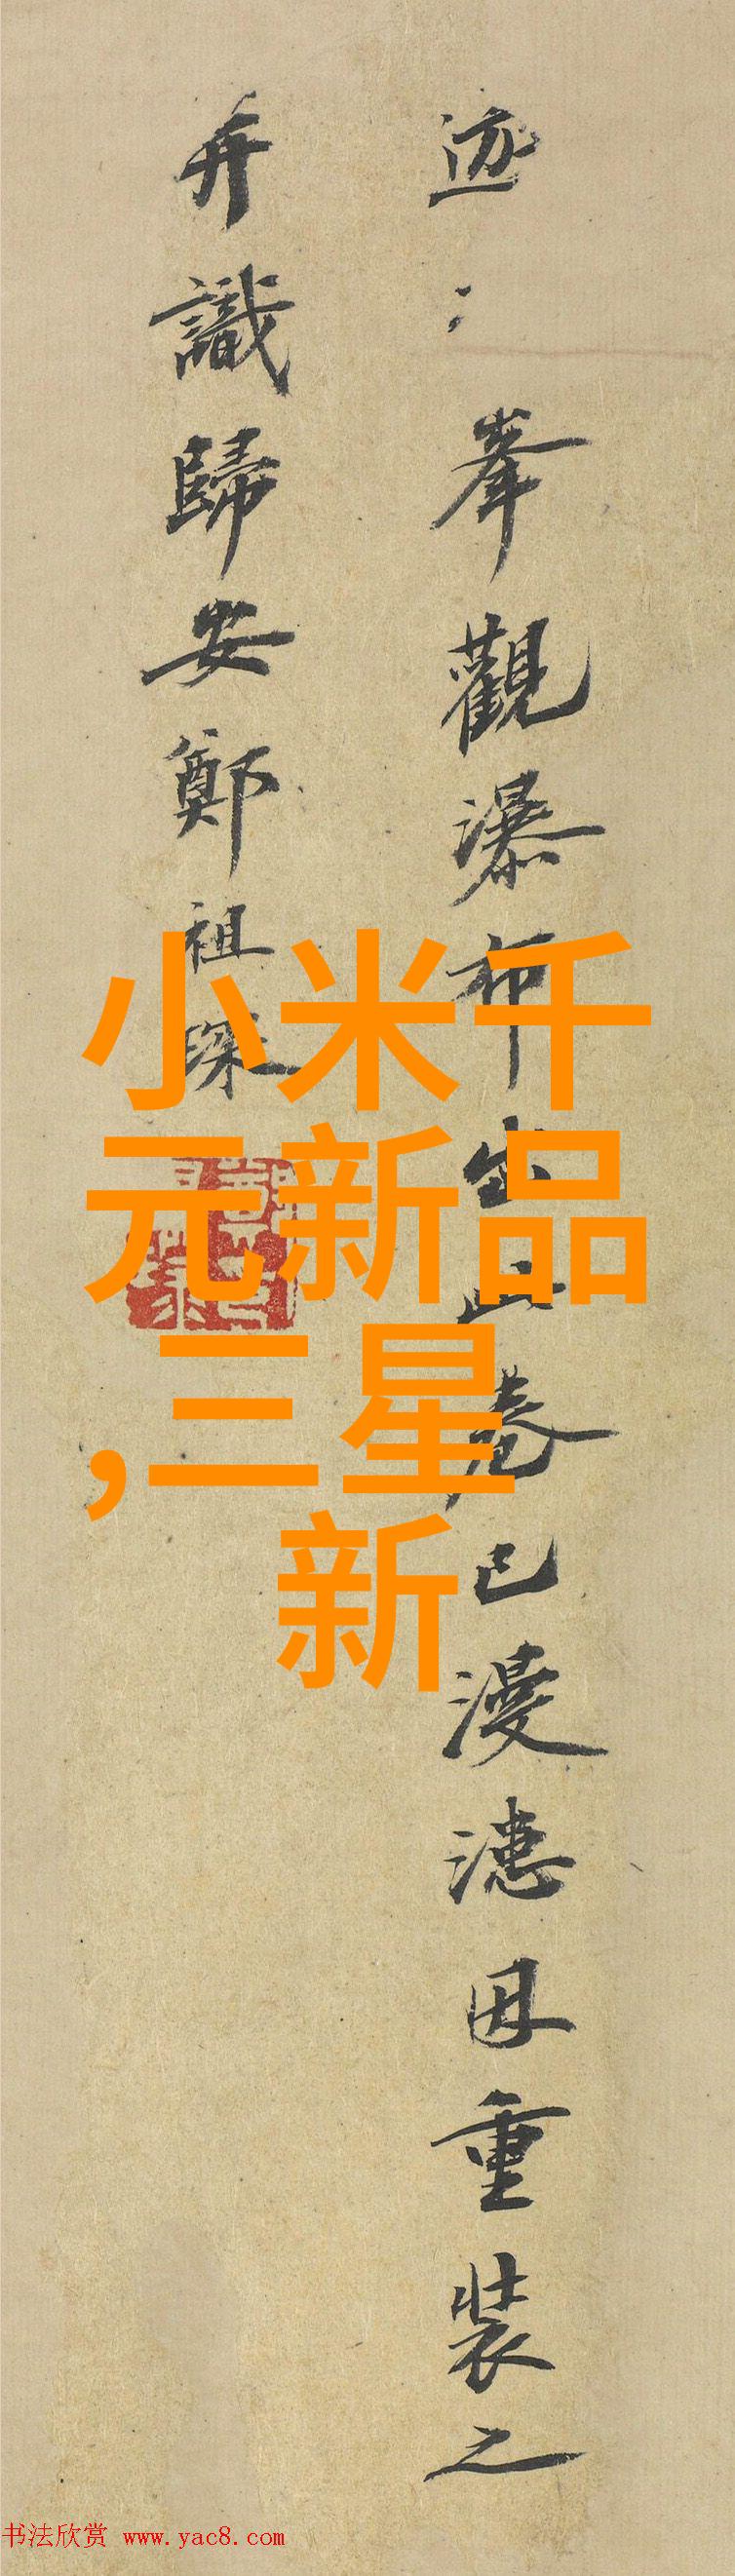 迹〻峯觀瀑布出此卷已漫漶因重装之
弆識歸安鄭祖琛
小米千
元新品
,三星
新
书法欣赏 www.yac8.com